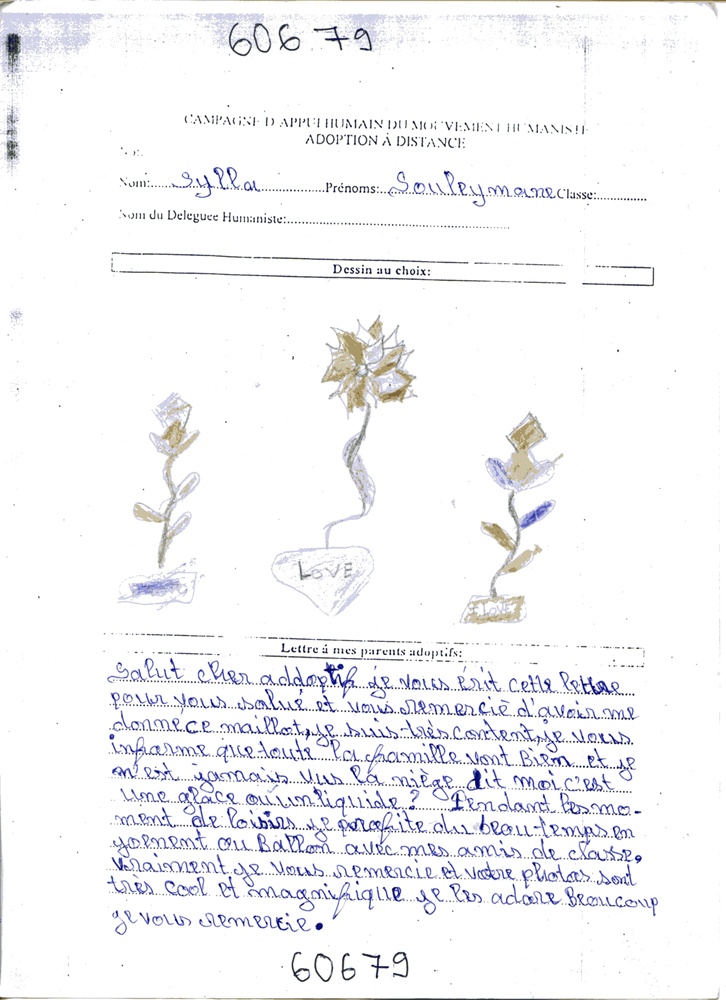 60679
CAMPAGNE D'APPUI HUMAIN DU MOUVEMENT HUMANISTE
ADOPTION À DISTANCE
Nom: Sylla Prénoms: Souleymane Classe:
Nom du Deleguee Humaniste:
Dessin au choix:
LOVE
I LOVE
Lettre á mes parents adoptifs:
Salut cher addoptif je vous érit cette lettre
pour vous salué et vous remercié d'avoir me
donne ce maillot, je suis très content, je vous
infrarme que toute la fhamille vont Biem et je
n'est jamais vus la niège dit moi c'est
Une glace ou un liquide? Pendant les mo-
ment de loisirs je porofite du beau-temps en
joenent au Ballon avec mes amis de classe.
Vraiment je vous remercie et votre photos sont
très cool et magnifique je les adore Beaucoup
je vous remercie.
60679